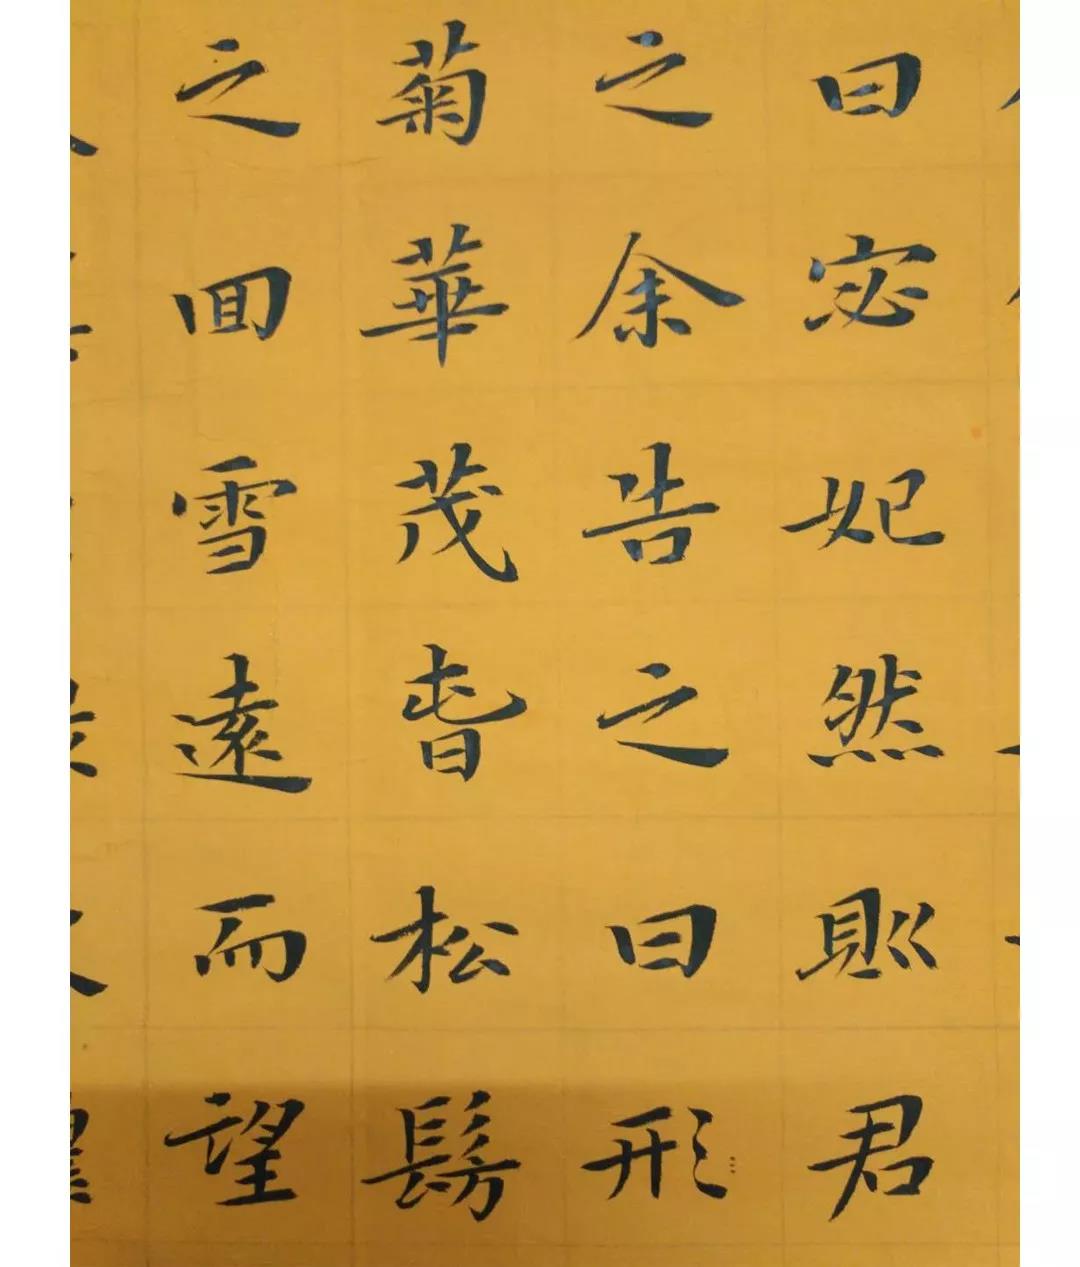 曰宓妃然則君
之余告之曰形
菊華茂旾松髣
之囬雪遠而望